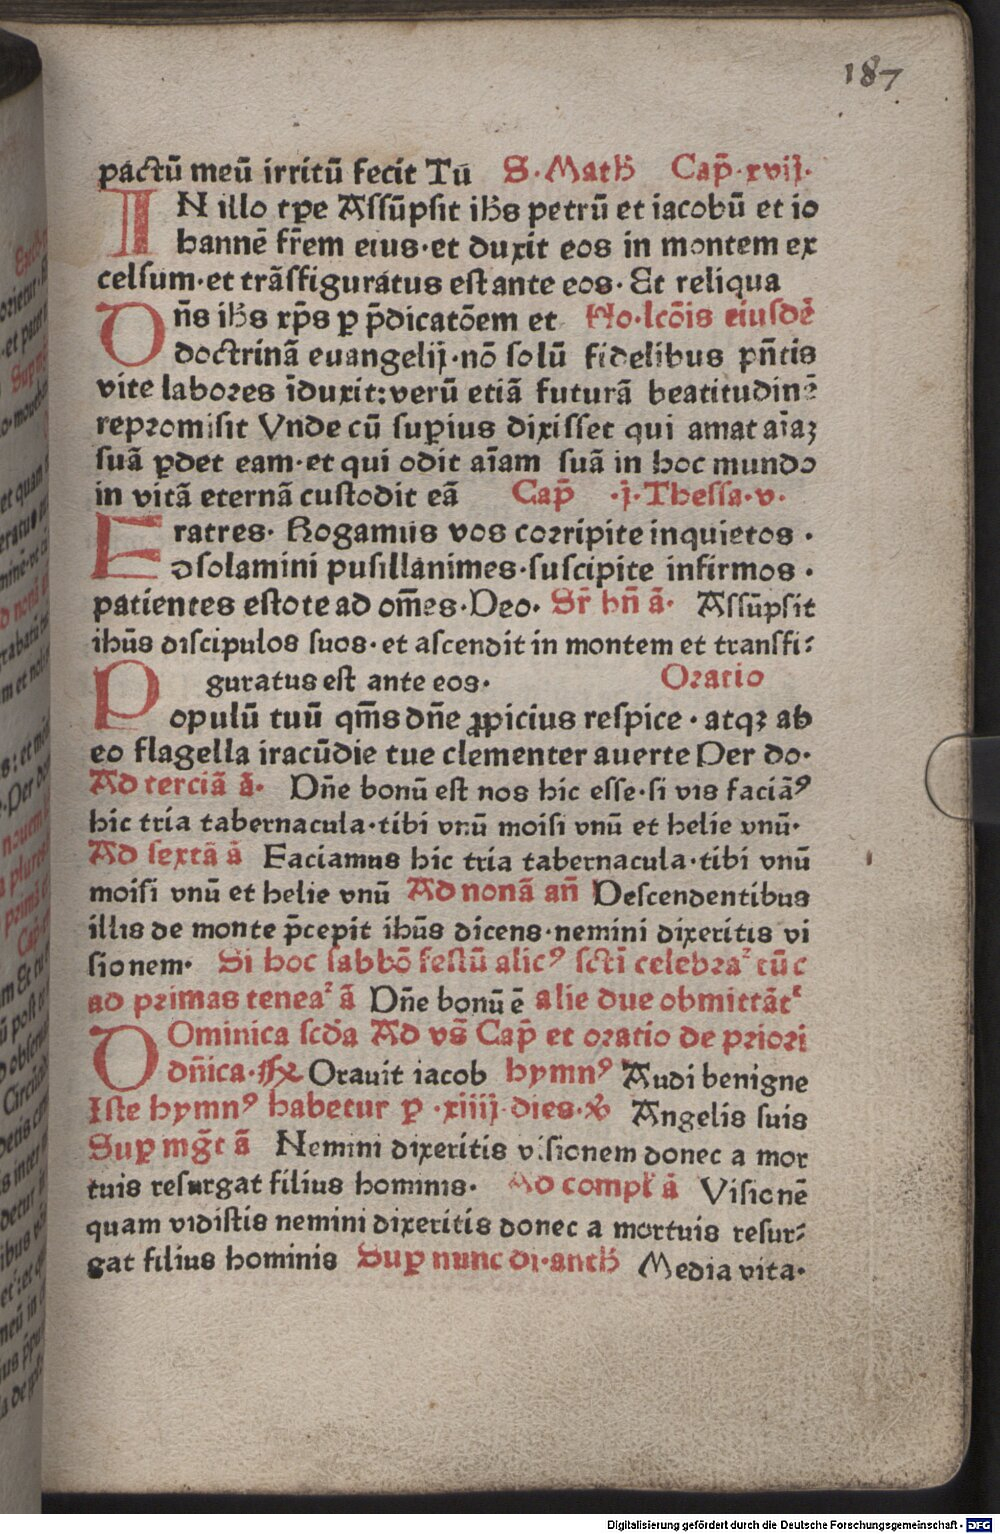 187
pactū meū irritū fecit Tū S. Math Cap̄ .xvij.
IN illo tp̄e Assūpsit ihs petrū et iacobū et io
hannē fr̄em eius.et duxit eos in montem ex
celsum.et trāsfiguratus est ante eos. Et reliqua
Dn̄s ihs xp̄s p p̄dicatōem et Ho.lcōis eiusdē
doctrinā euangelij.nō solū fidelibus pn̄tis
vite labores īduxit:verū etiā futurā beatitudinē
repromisit Vnde cū superius dixisset qui amat aīaꝫ
suā ꝑdet eam.et qui odit aīam suā in hoc mundo
in vitā eternā custodit eā Cap̄ .j.Thessa.v.
Fratres. Rogamus vos corripite inquietos .
ↄsolamini pusillanimes.suscipite infirmos .
patientes estote ad om̄es.Deo. Sr̄ bn̄ ā. Assūpsit
ihūs discipulos suos.et ascendit in montem et transfi⸗
guratus est ante eos. Oratio
Populū tuū qm̄s dn̄e ꝓpicius respice . atqꝫ ab
eo flagella iracūdie tue clementer auerte Per do.
Ad terciā ā. Dn̄e bonū est nos hic esse.si vis faciāꝰ
hic tria tabernacula.tibi vnū moisi vnū et helie vnū.
Ad sextā ā Faciamus hic tria tabernacula.tibi vnū
moisi vnū et helie vnū Ad nonā an̄ Descendentibus
illis de monte p̄cepit ihūs dicens.nemini dixeritis vi
sionem. Si hoc sabbō festū alicꝰ scti celebraᷣ tūc
ad primas teneaᷣ ā Dn̄e bonū ē alie due obmittātᷣ
DOminica scd̄a Ad vs̄ Cap̄ et oratio de priori
dn̄ica. ℟ Orauit iacob hymnꝰ Audi benigne
Iste hymnꝰ habetur ꝑ .xiiij.dies. ℣ Angelis suis
Sup mḡt ā Nemini dixeritis visionem donec a mor
tuis resurgat filius hominis. Ad compl̄ ā Visionē
quam vidistis nemini dixeritis donec a mortuis resur⸗
gat filius hominis Sup nunc di.anth Media vita.
Digitalisierung gefördert durch die Deutsche Forschungsgemeinschaft - DFG